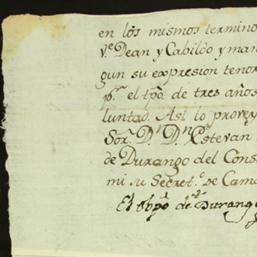 en los mismos termino
Ve Dean y Cabildo y man
gun su expresion tenor
pr. el tpo. de tres años
luntad. Asi lo provey
Sor. Dn. Dn. Estevan
de Durango del Cons
mi su Secreto. de Cama
El Obpo. de Durango